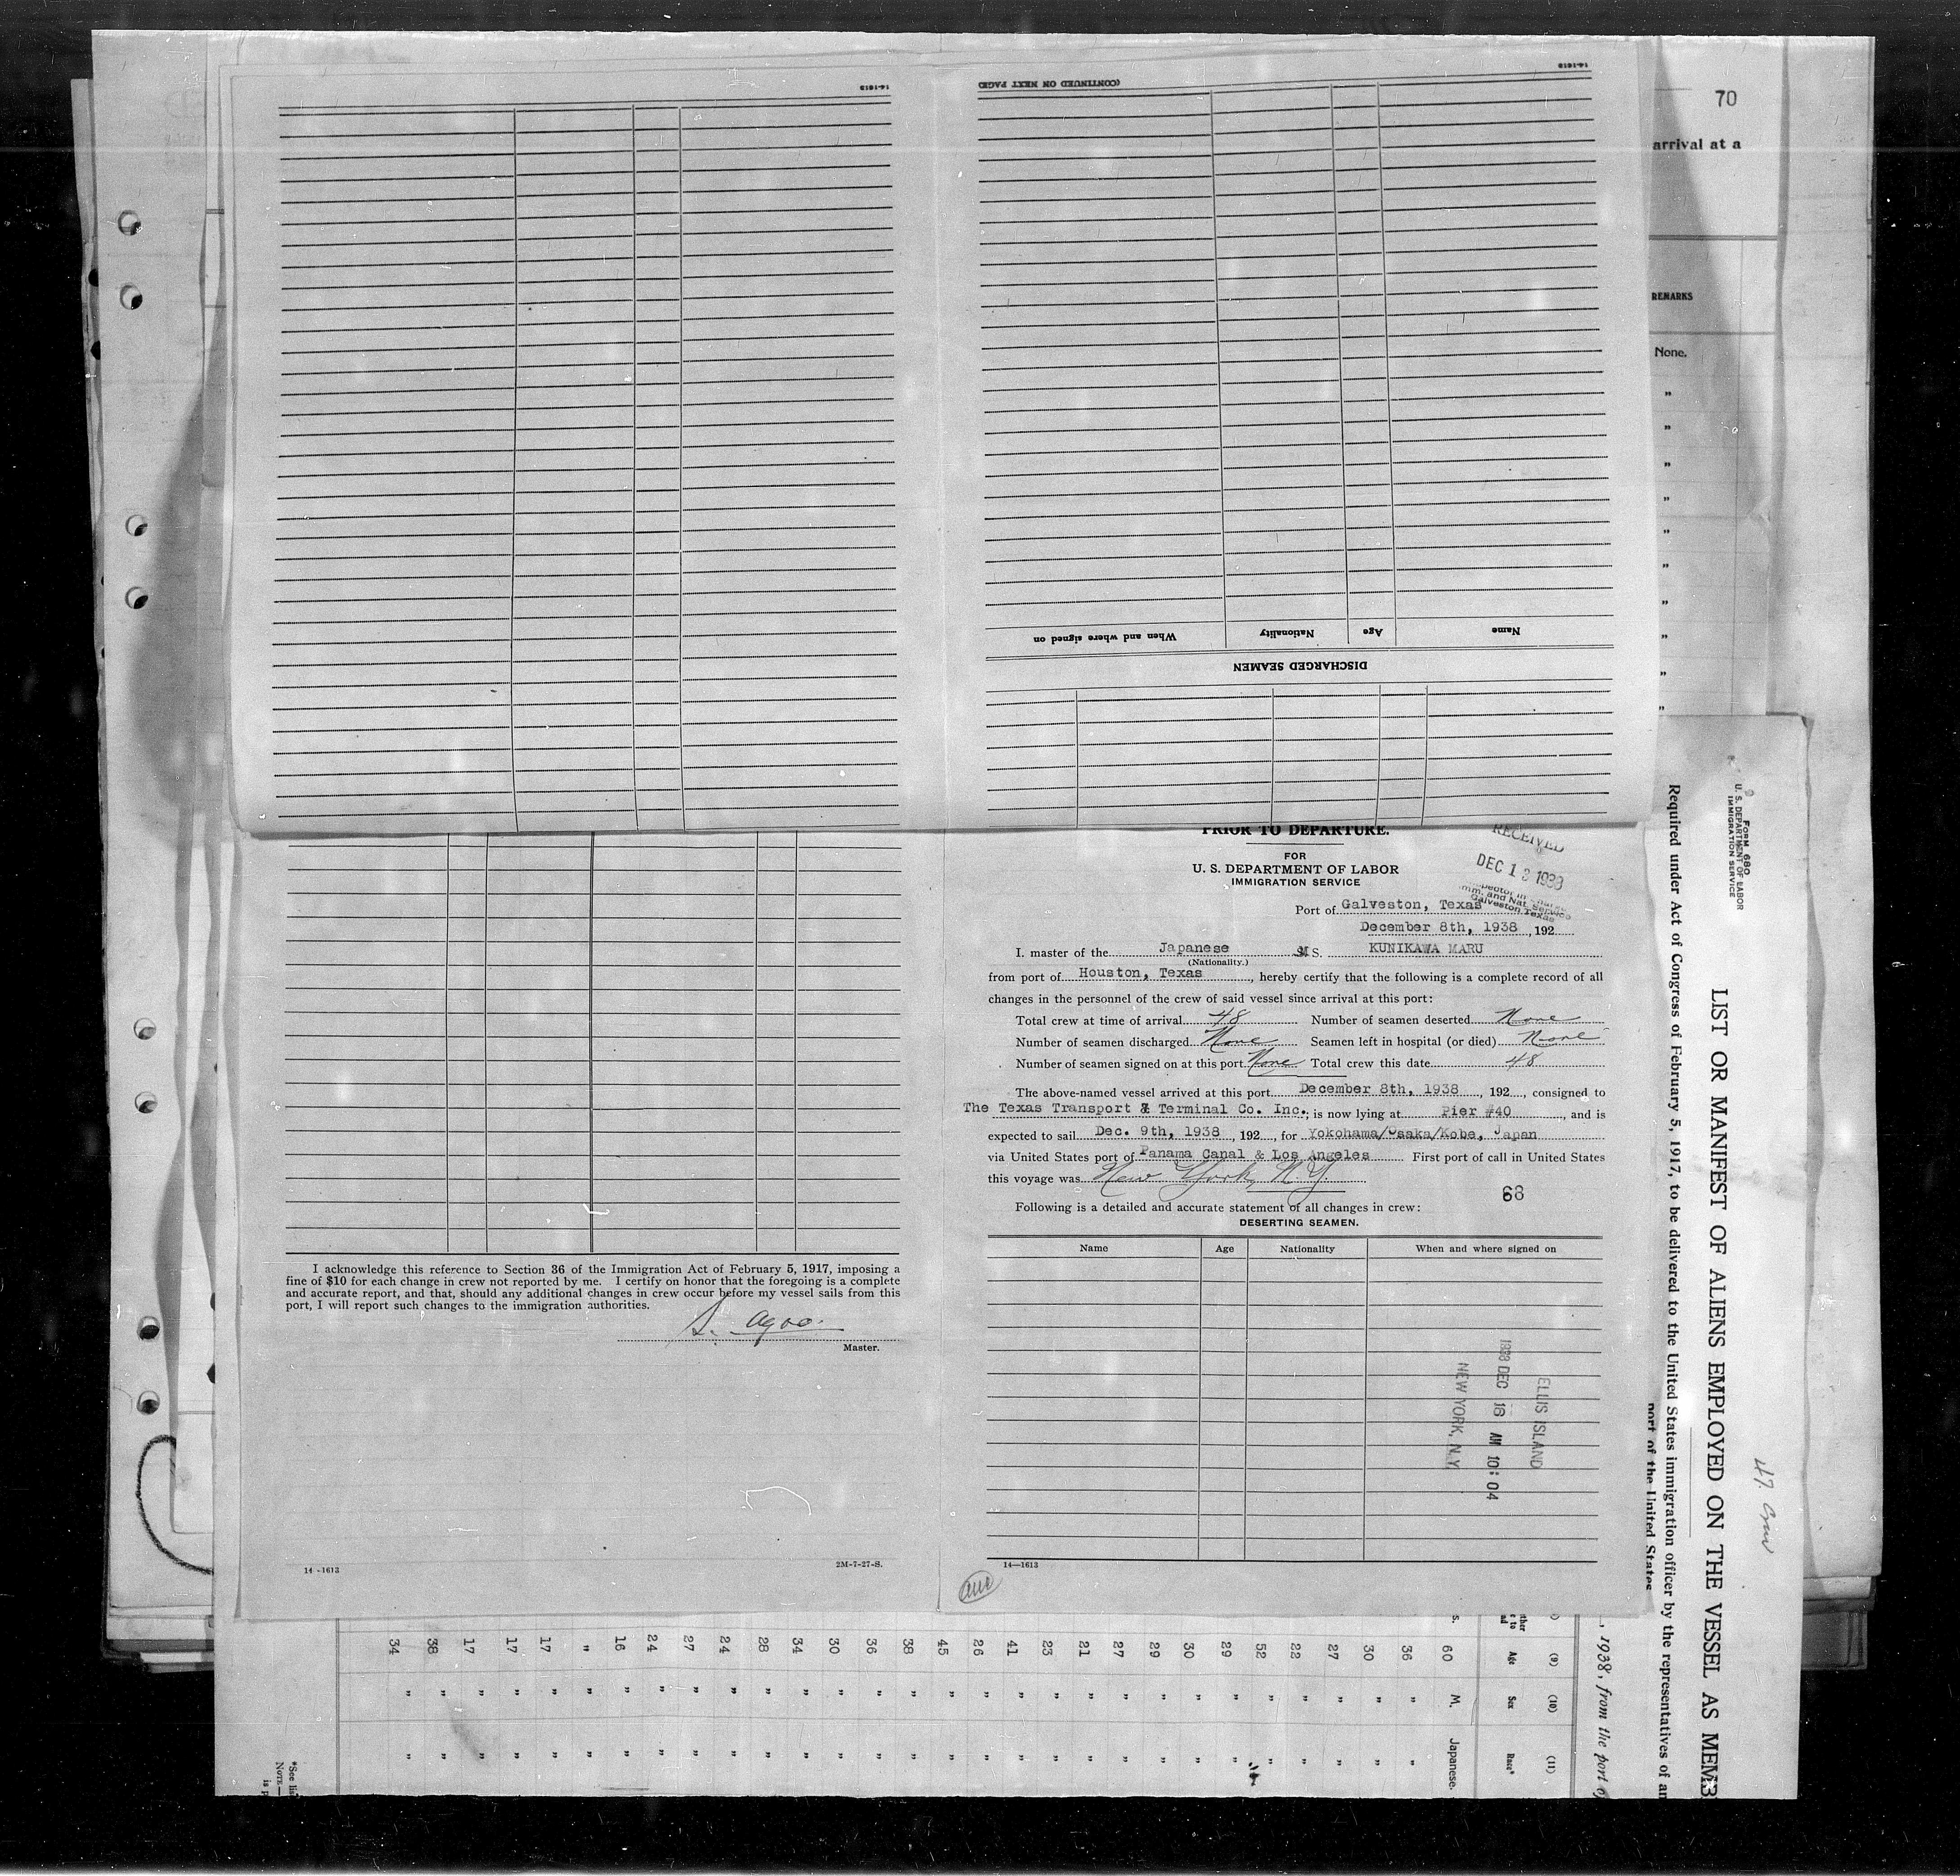 14-1613
(CONTINUED ON NEXT PAGE)
14-1613
When and where signed on
Nationality
Age
Name
DISCHARGED SEAMEN
70
arrival at a
REMARKS
None.
"
"
"
"
"
"
"
"
"
"
PRIOR TO DEPARTURE.
FOR
U. S. DEPARTMENT OF LABOR
IMMIGRATION SERVICE
RECEIVED
DEC 13 1938
Inspector in Charge
Imm. and Nat. Service
Galveston Texas
Port of Galveston, Texas
December 8th, 1938, 192
I. master of the Japanese M S. KUNIKAWA MARU
(Nationality.)
from port of Houston, Texas, hereby certify that the following is a complete record of all
changes in the personnel of the crew of said vessel since arrival at this port:
Total crew at time of arrival 48 Number of seamen deserted None
Number of seamen discharged None Seamen left in hospital (or died) None
Number of seamen signed on at this port None Total crew this date 48
The above-named vessel arrived at this port December 8th, 1938, 192, consigned to
The Texas Transport & Terminal Co. Inc.; is now lying at Pier #40, and is
expected to sail Dec. 9th, 1938, 192, for Yokohama/Osaka/Kobe, Japan
via United States port of Panama Canal & Los Angeles First port of call in United States
this voyage was New York, N.Y.
68
Following is a detailed and accurate statement of all changes in crew:
DESERTING SEAMEN.
Name Age Nationality When and where signed on
ELLIS ISLAND
1938 DEC 16 AM 10:04
NEW YORK, N.Y.
14—1613
I acknowledge this reference to Section 36 of the Immigration Act of February 5, 1917, imposing a
fine of $10 for each change in crew not reported by me. I certify on honor that the foregoing is a complete
and accurate report, and that, should any additional changes in crew occur before my vessel sails from this
port, I will report such changes to the immigration authorities.
Master.
14-1613
2M-7-27-S.
FORM 680
U. S. DEPARTMENT OF LABOR
IMMIGRATION SERVICE
LIST OR MANIFEST OF ALIENS EMPLOYED ON THE VESSEL AS MEMB
Required under Act of Congress of February 5, 1917, to be delivered to the United States immigration officer by the representatives of an
port of the United States
47 Crew
, 1938, from the port of
(9) (10) (11)
Age Sex Race*
60 M. Japanese.
36 " "
30 " "
27 " "
22 " "
52 " "
29 " "
30 " "
29 " "
27 " "
21 " "
23 " "
41 " "
26 " "
45 " "
38 " "
36 " "
30 " "
34 " "
28 " "
24 " "
27 " "
24 " "
16 " "
" " "
17 " "
17 " "
17 " "
38 " "
34 " "
*See lis
NOTE—
is p